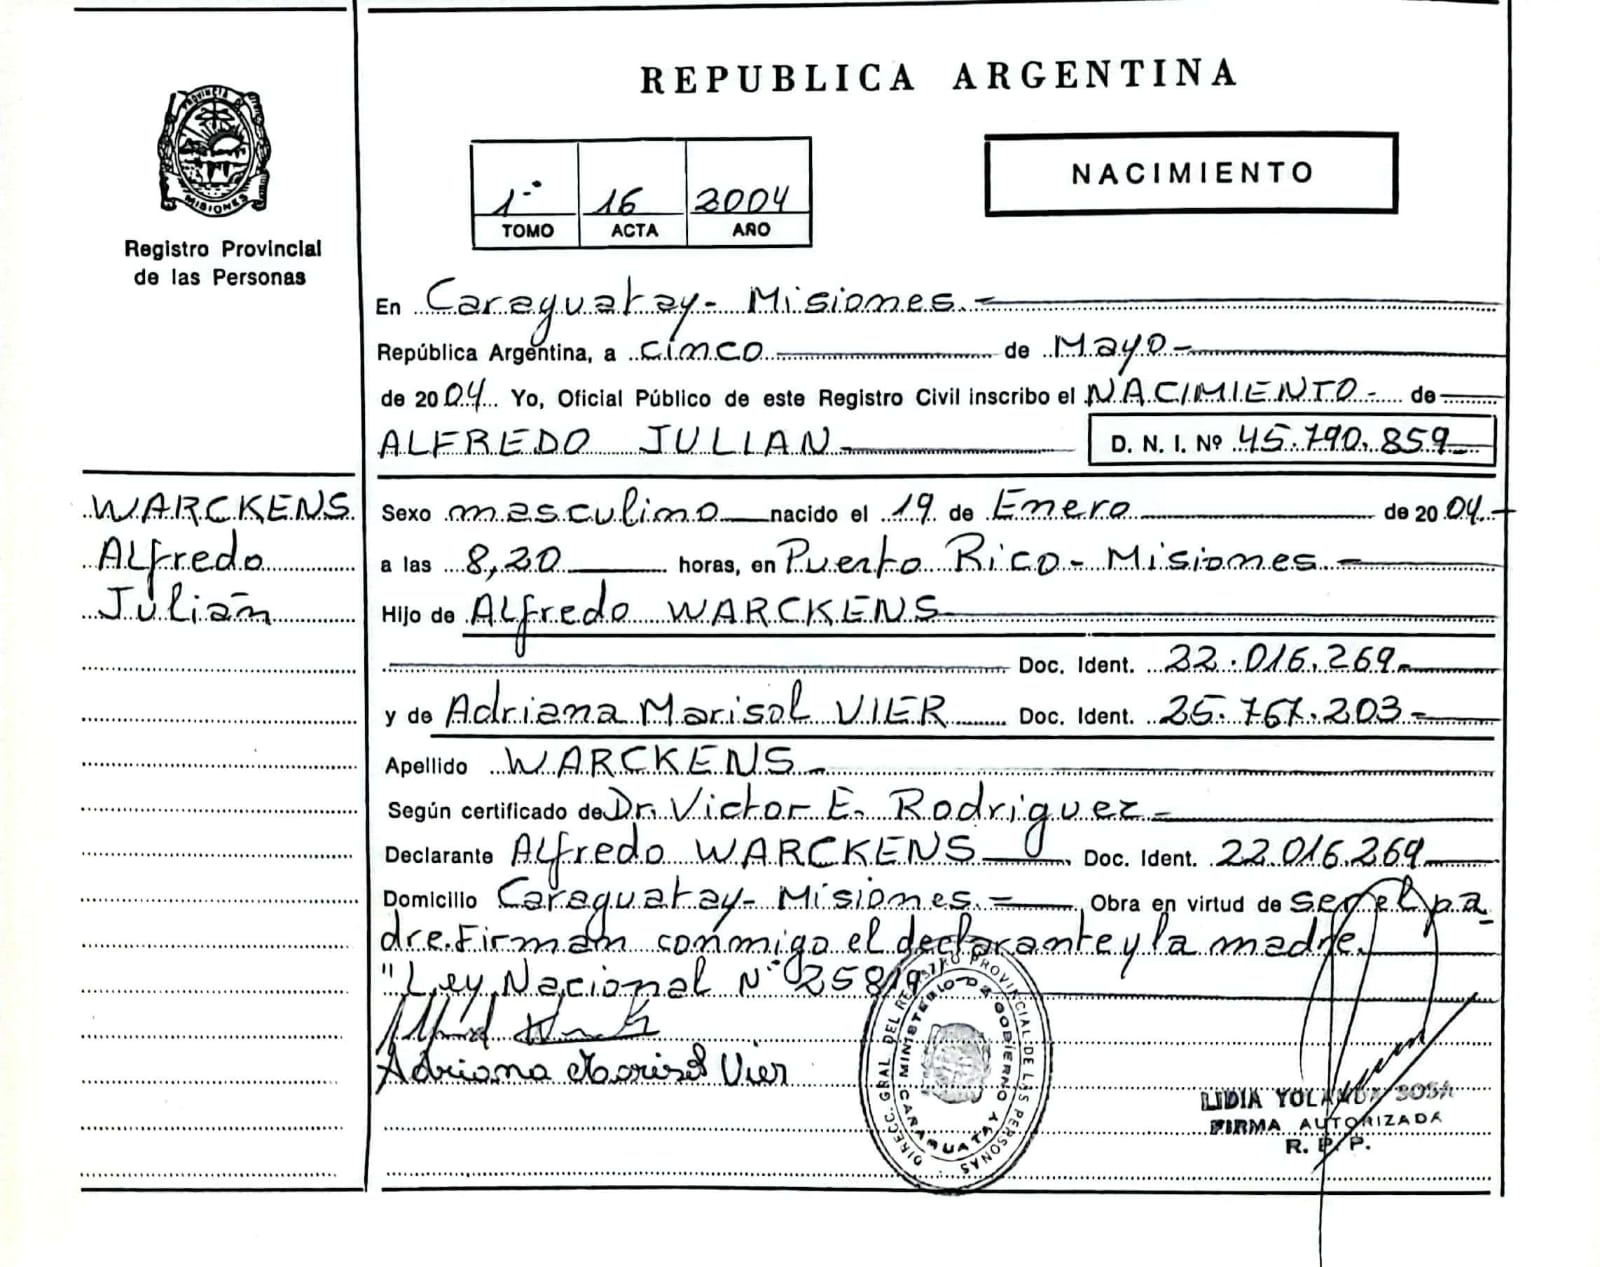 REPUBLICA ARGENTINA
PROVINCIA DE MISIONES
Registro Provincial
de las Personas
1º 16 2004
TOMO ACTA AÑO
NACIMIENTO
En Caraguatay- Misiones.-
República Argentina, a cinco de Mayo-
de 2004 Yo, Oficial Público de este Registro Civil inscribo el NACIMIENTO- de
ALFREDO JULIAN- D. N. I. Nº 45.790.859-
WARCKENS
Alfredo
Julián
Sexo masculino nacido el 19 de Enero de 2004.-
a las 8,20 horas, en Puerto Rico- Misiones.-
Hijo de Alfredo WARCKENS-
Doc. Ident. 22.016.269-
y de Adriana Marisol VIER Doc. Ident. 25.767.203-
Apellido WARCKENS-
Según certificado de Dr. Victor E. Rodriguez-
Declarante Alfredo WARCKENS Doc. Ident. 22.016.269
Domicilio Caraguatay- Misiones.- Obra en virtud de ser el pa
dre. Firman conmigo el declarante y la madre.
"Ley Nacional Nº 25819"
Adriana Marisol Vier
DIRECC. GRAL. DEL REGISTRO PROVINCIAL DE LAS PERSONAS
MINISTERIO DE GOBIERNO
CARAGUATAY
LIDIA YOLANDA SOSA
FIRMA AUTORIZADA
R. P. P.